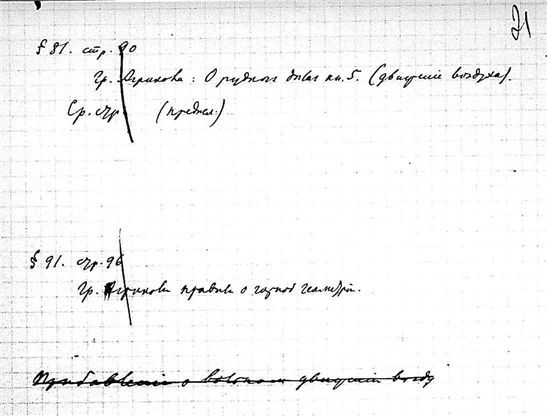 21
§ 81. стр. 90
Гр. Агрикова: О рудном делах кн. 5. (движение воздуха).
Ср. стр. (предпол.)
§ 91. стр. 96
Гр. Агрикови правила о горной геометріи.
Прибавленіе о вольном движеніи возду